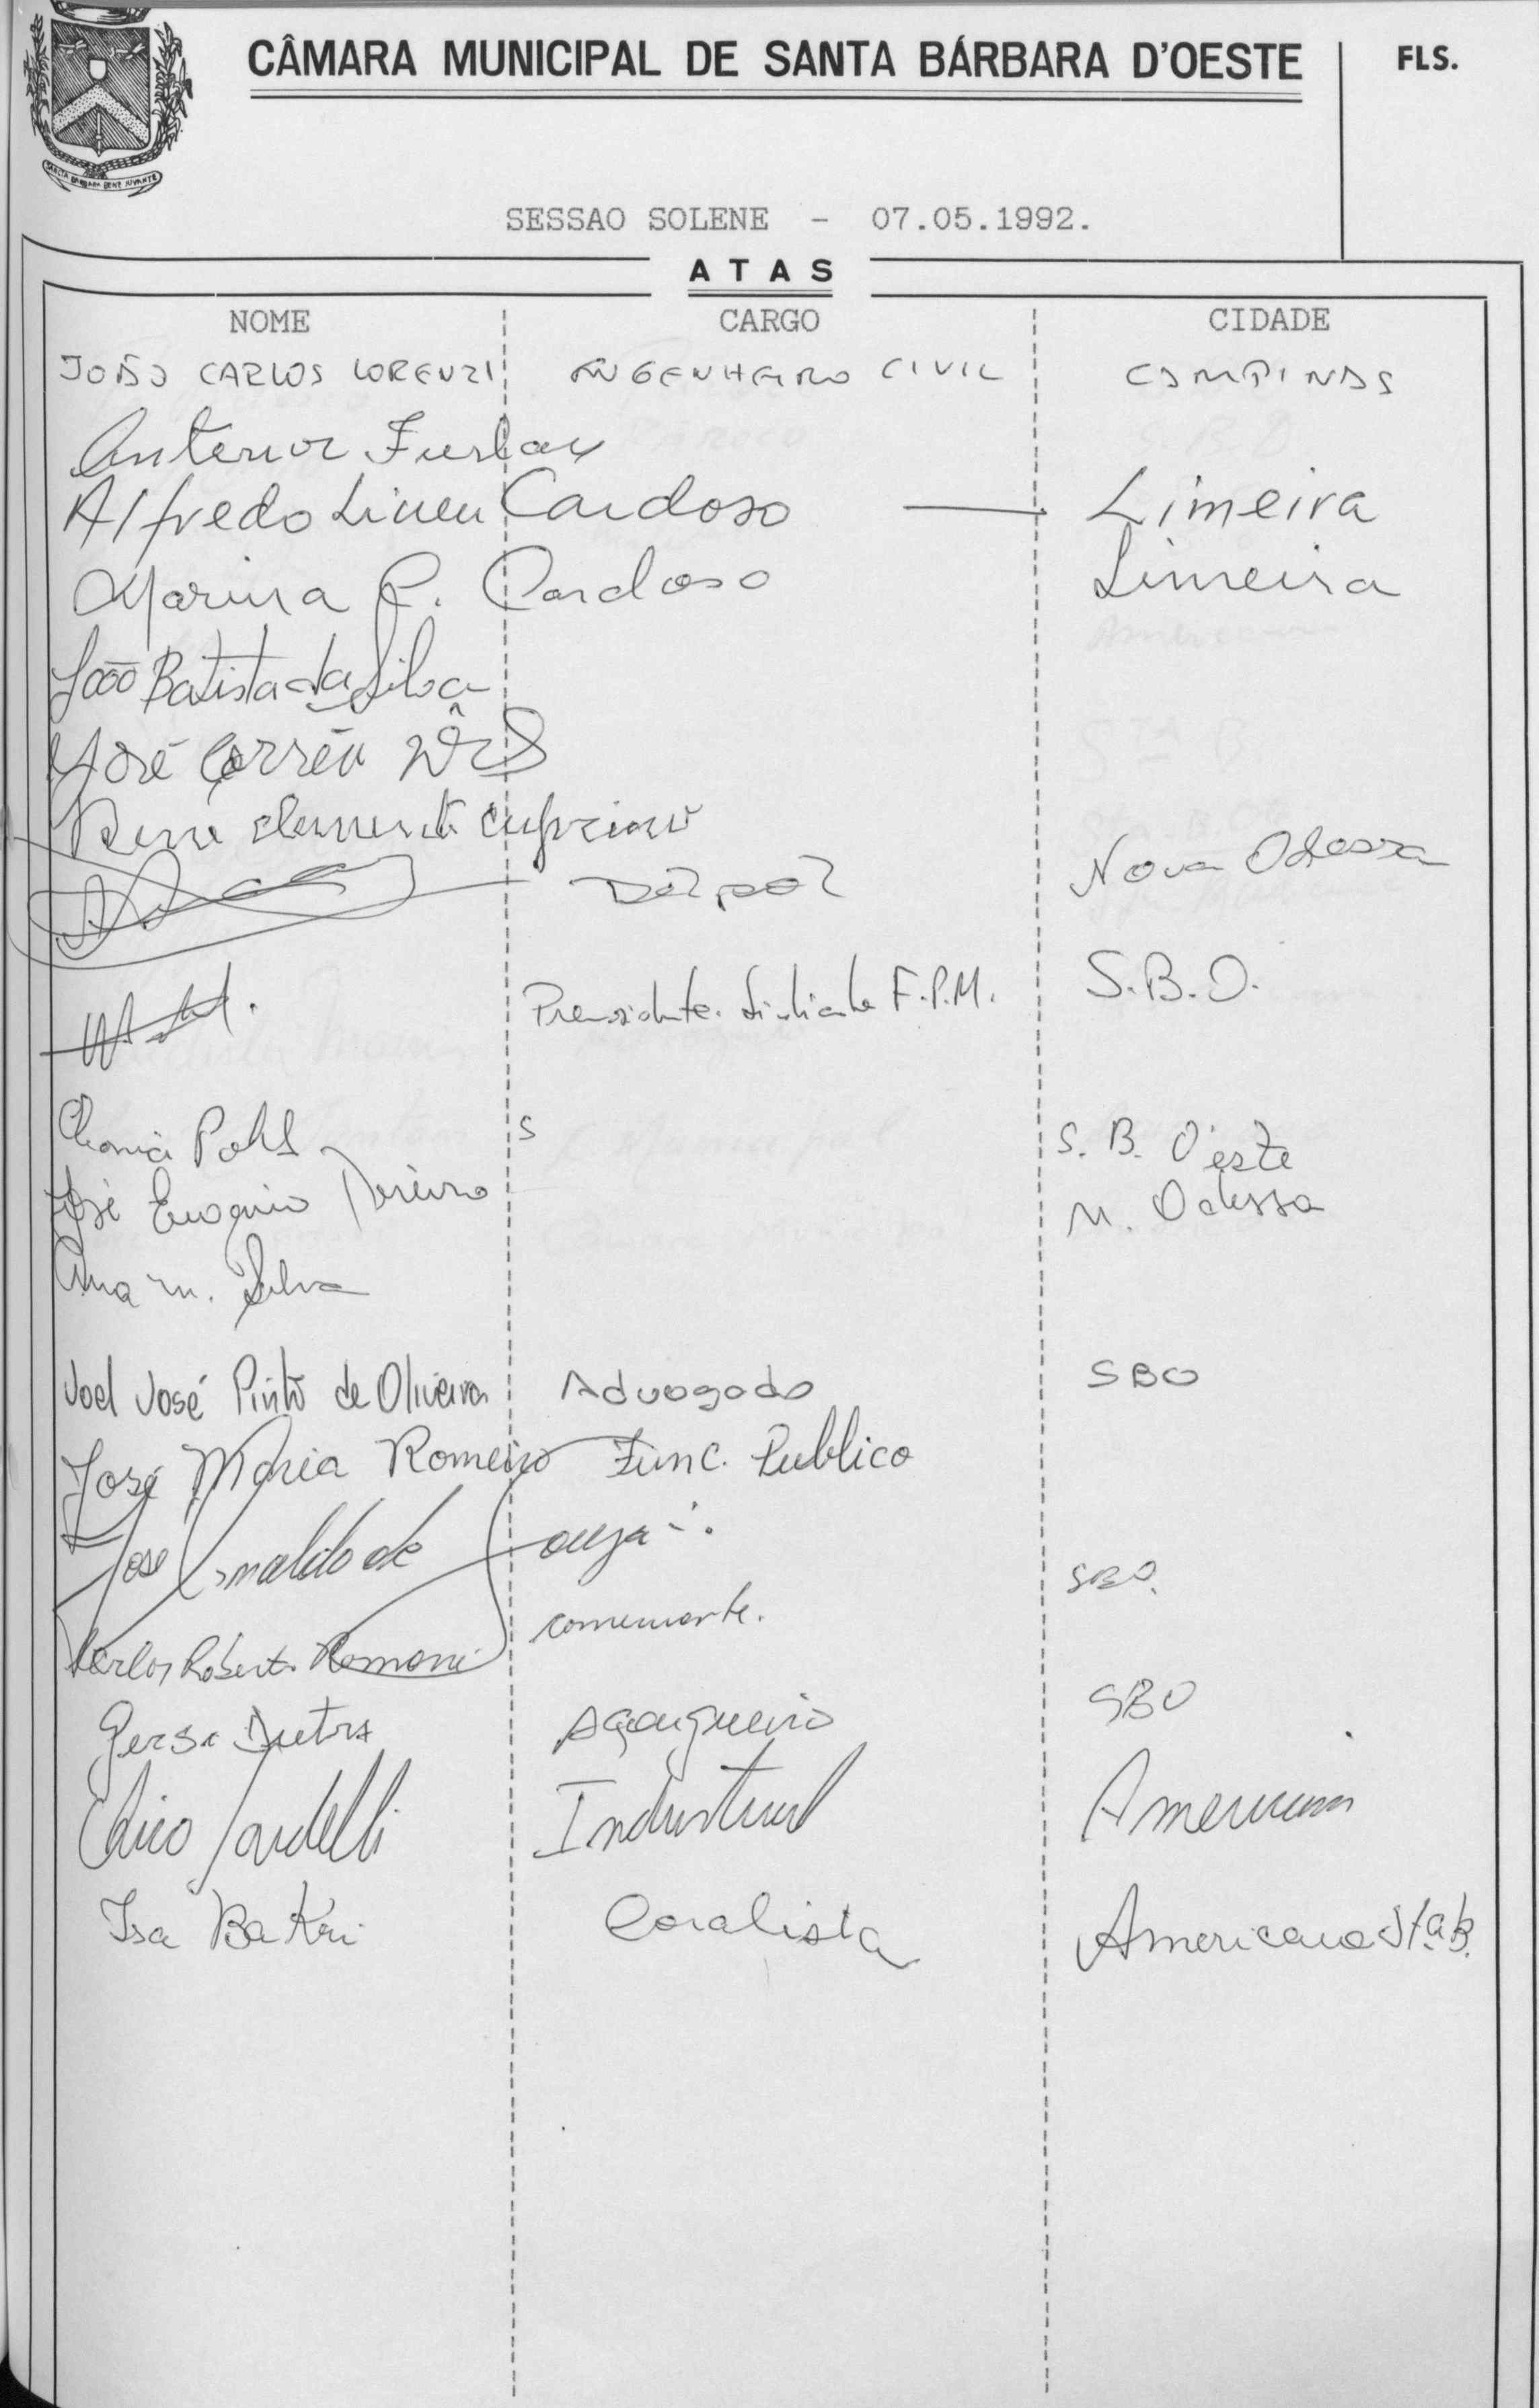 CÂMARA MUNICIPAL DE SANTA BÁRBARA D'OESTE FLS.
SESSAO SOLENE - 07.05.1992.
ATAS
NOME CARGO CIDADE
JOÃO CARLOS LORENZI ENGENHEIRO CIVIL CAMPINAS
Antenor Furlan
Alfredo Lineu Cardoso — Limeira
Marina P. Cardoso Limeira
João Batista da Silva
José Corrêa
Rene Clemente Cypriano
Nova Odessa
Presidente F.P.M. S.B.O.
Pohl S S. B. O'este
José Eugenio Pereira N. Odessa
Ana M. Silva
Joel José Pinto de Oliveira Advogado SBO
José Maria Romeiro Func. Publico
José de Souza
Carlos Roberto Romani comerciante. SBO.
Dutra Açougueiro SBO
Chico Sardelli Industrial Americana
Isa Bakri Coralista Americana Sta B.